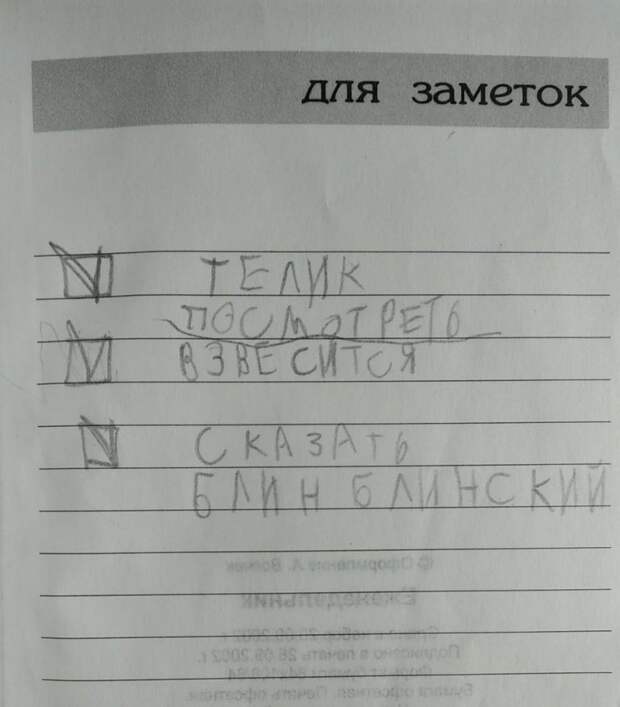 для заметок
ТЕЛИК
ПОСМОТРЕТЬ
ВЗВЕСИТСЯ
СКАЗАТЬ
БЛИН БЛИНСКИЙ